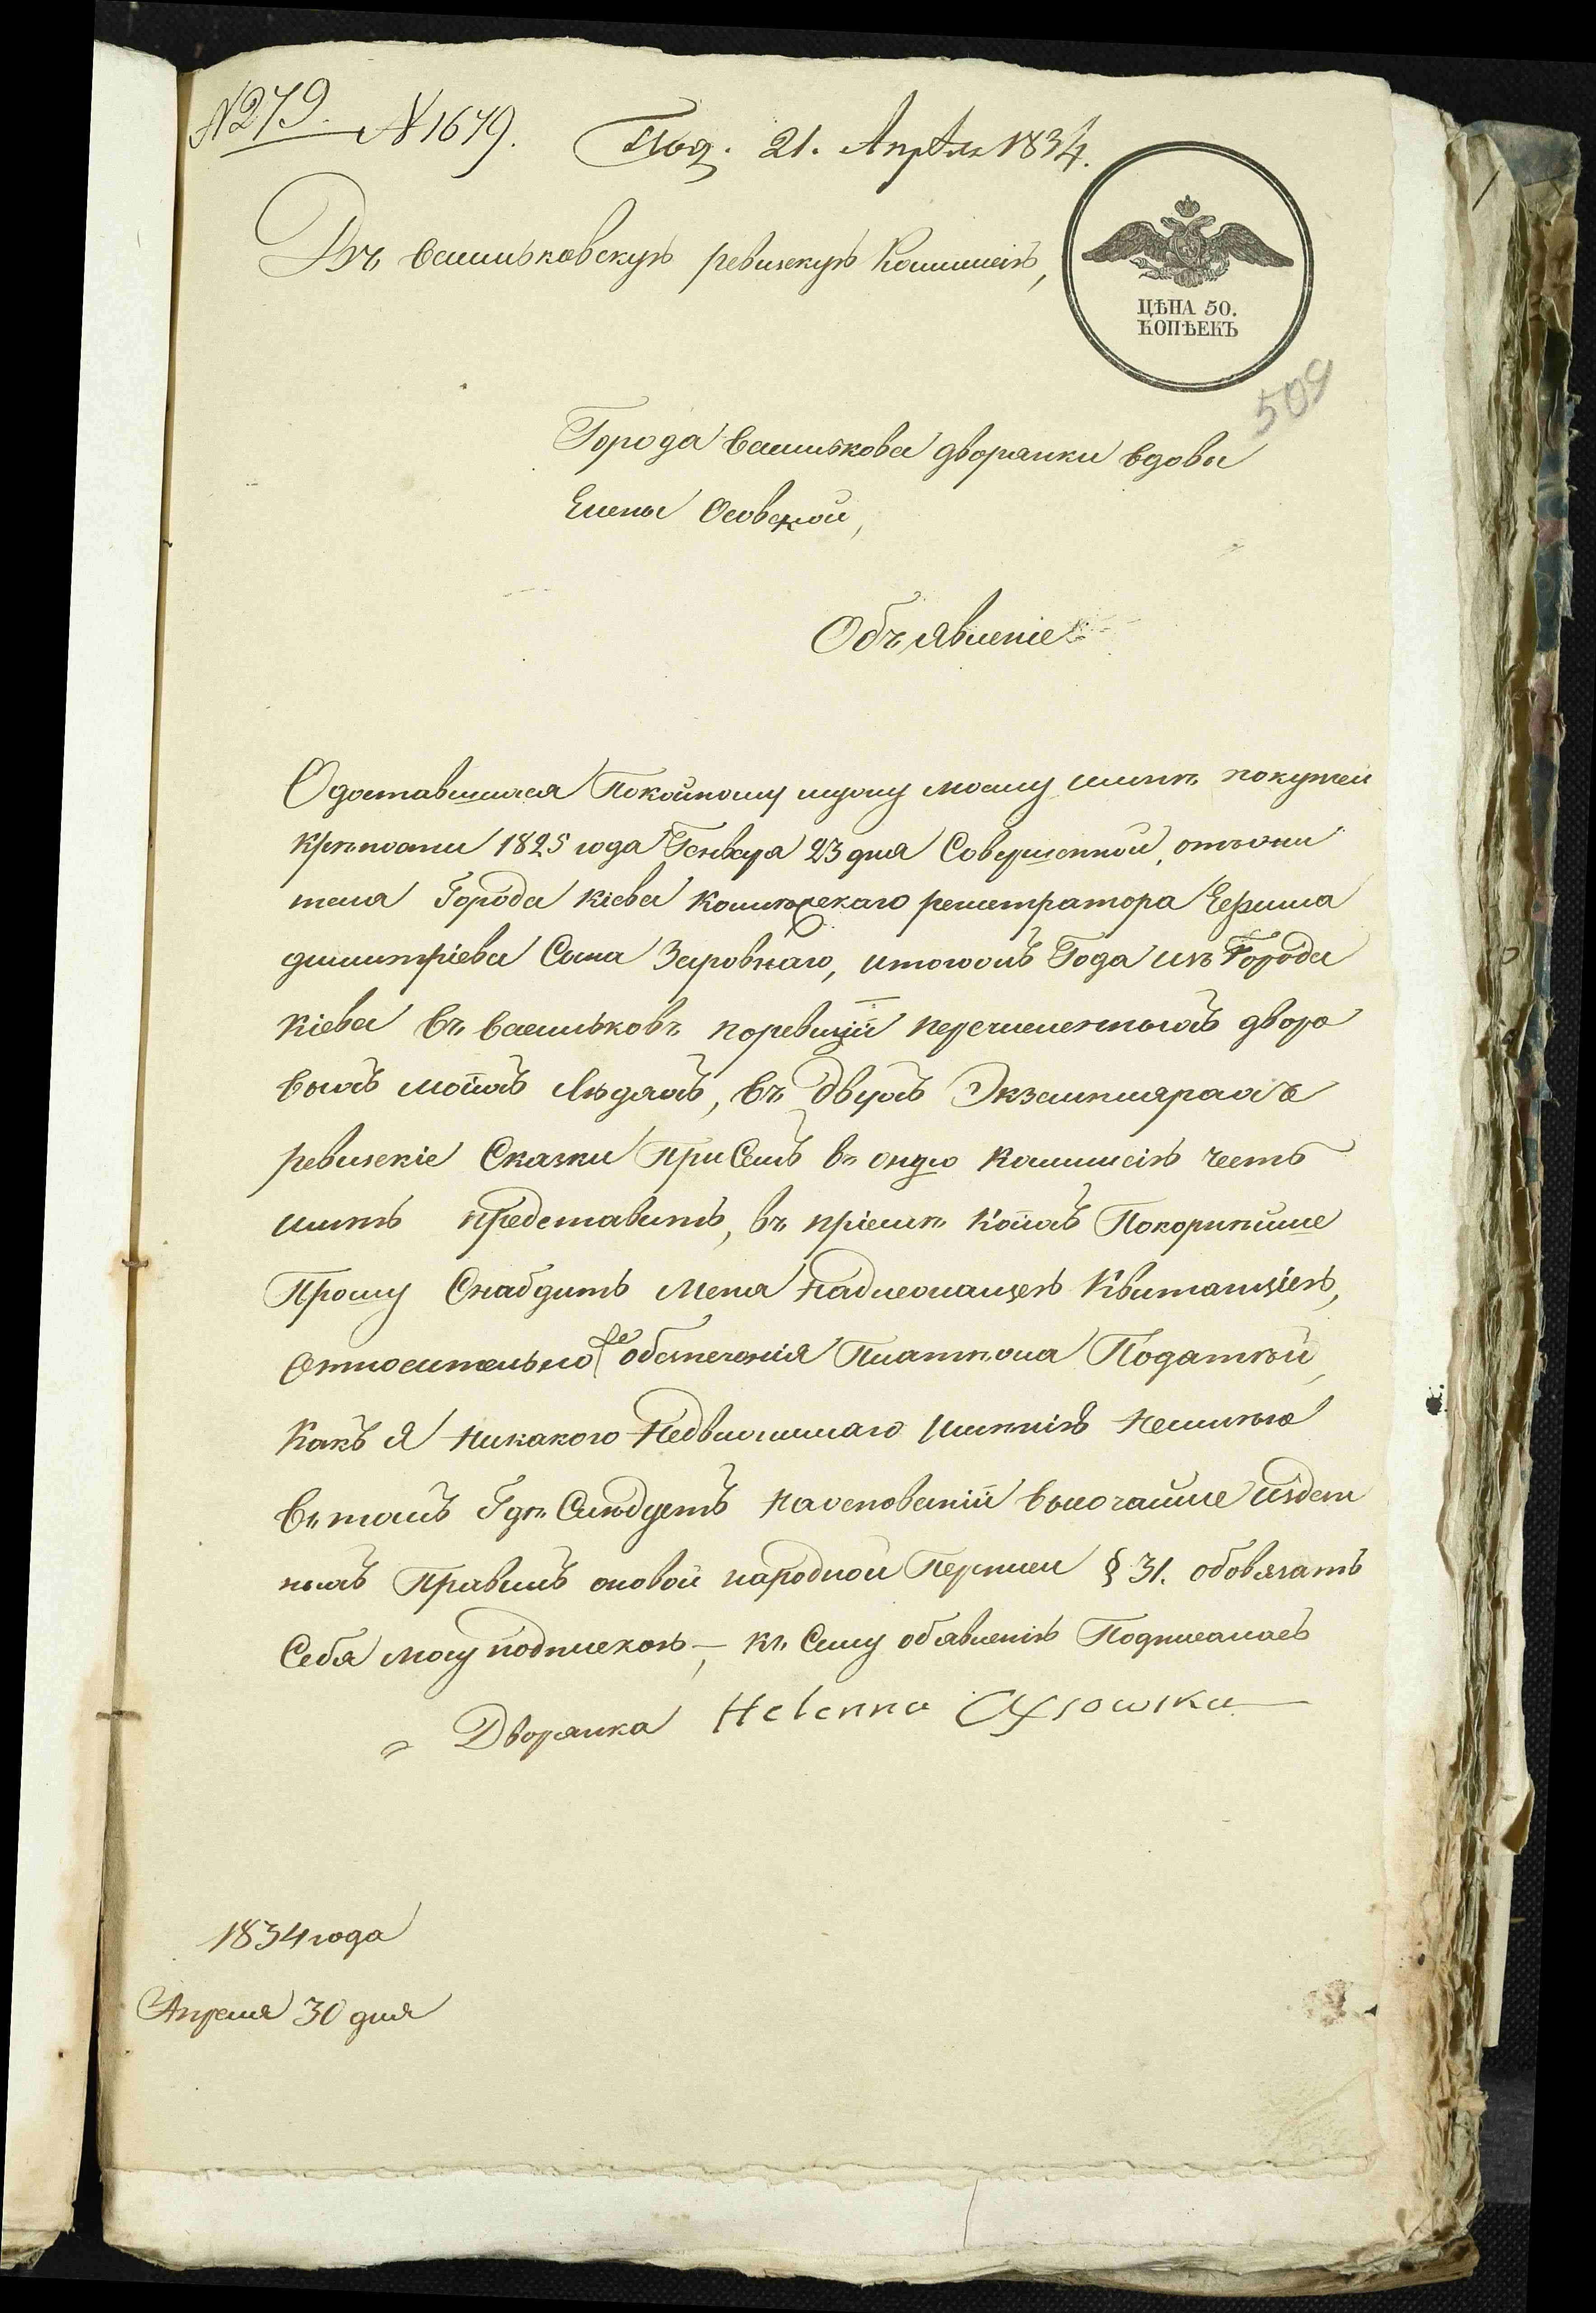 №279. №1679. Под. 21. Апрѣля 1834.
Въ васильковскую ревизскую Коммисію,
ЦѢНА 50.
КОПѢЕКЪ
509
Города василькова дворянки вдовы
Елены Осовской,
Объявленіе
О доставшихся Покойному мужу моему имѣн. покупчей
крѣпости 1825 года Генваря 23 дня Совершенной, отъ жи
теля Города Кіева Колежскаго регистратора Ефима
димитріева Сына Заровнаго, итогожъ Года изъ Города
Кіева въ васильковъ поревизіи перечисленныхъ дворо
выхъ моихъ людяхъ, въ двухъ Экземплярахъ
ревизскіе Сказки При Семъ въ оную Коммисію честь
имѣю представить, въ пріемѣ коихъ Покорнѣйше
Прошу Снабдить меня надлежащею Квитанціею,
Относительно же обезпеченія Платежа Податѣй,
Какъ я никакого недвижимаго имѣнія неимѣю
въ томъ Гдѣ Слѣдуетъ наоснованіи высочайше издан
ныхъ Правилъ оновой народной Переписи § 31. обовязать
Себя могу подпискою —, къ Сему обявленію Подписалась
Дворянка Helenna Ossowska
1834 года
Апреля 30 дня